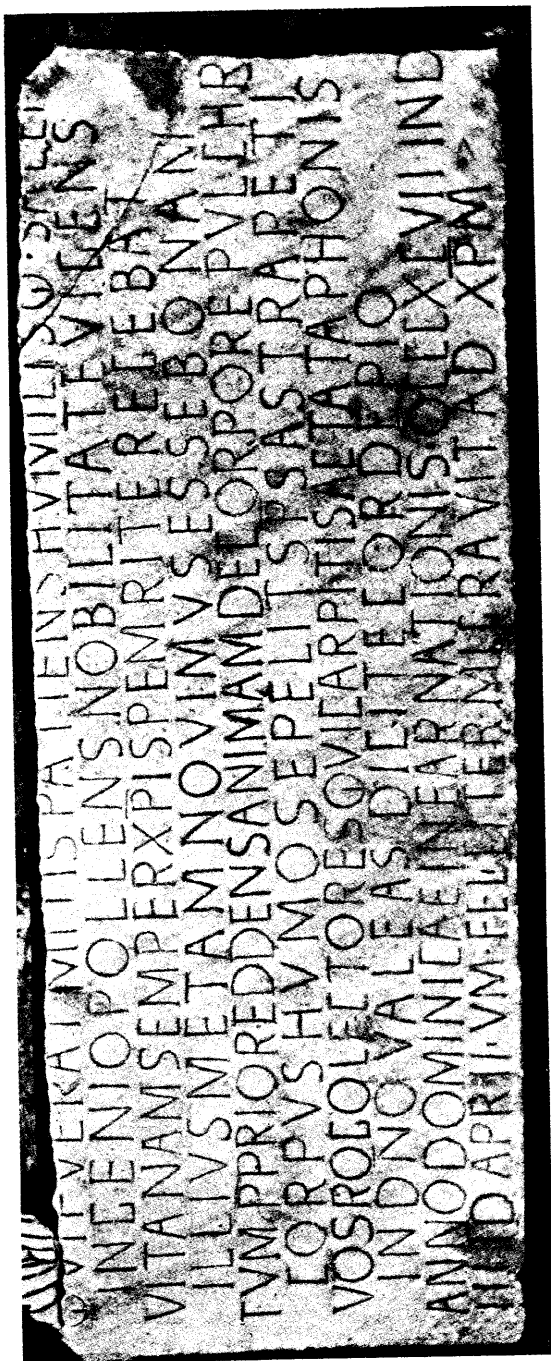 QVIFVERATMITISPATIENSHVMILISQ·
INGENIOPOLLENSNOBILITATEVIGENS
VITANAMSEMPERXPISPEMRITEREGEBAT
ILLIVSMETAMNOVIMVSESSEBONAM
TVMPPRIOREDDENSANIMAMDECORPOREPVLCHR
CORPVSHVMOSEPELITSPSASTRAPETI
VOSROGOLECTORESQVICARPITISAETATAPHONIS
INDNOVALEASDICITECORDEPIO
ANNODOMINICAEINCARNATIONIS
XPM